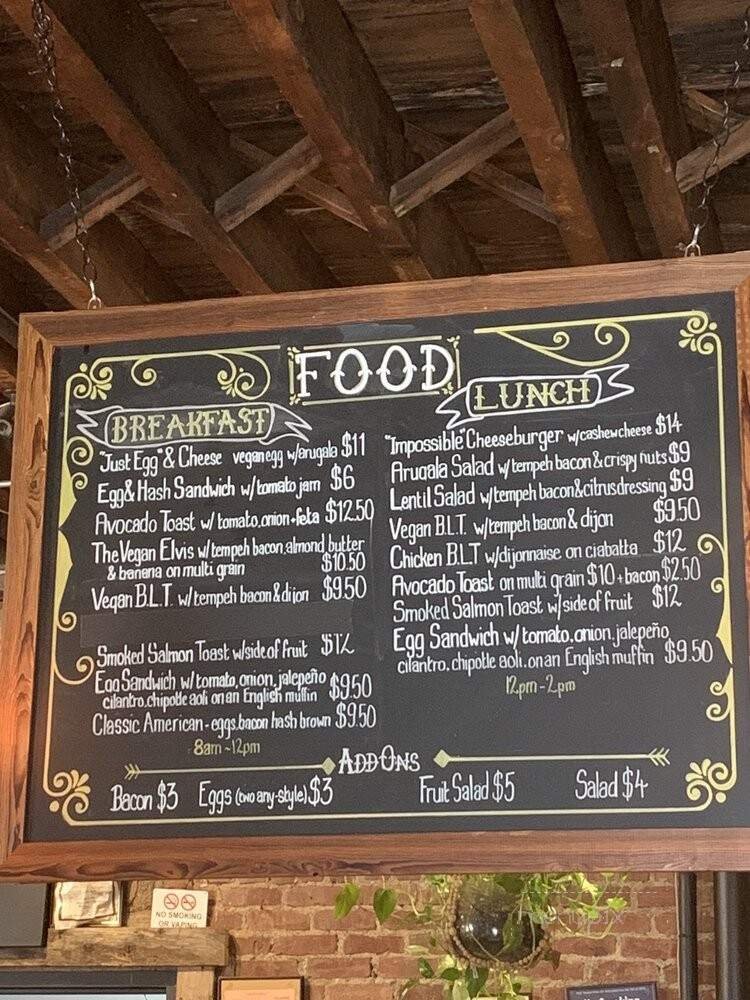 FOOD
BREAKFAST
"Just Egg" & Cheese vegan egg w/arugala $11
Egg & Hash Sandwich w/tomato jam $6
Avocado Toast w/tomato, onion + feta $12.50
The Vegan Elvis w/tempeh bacon, almond butter
& banana on multi grain $10.50
Vegan B.L.T. w/tempeh bacon & dijon $9.50
Smoked Salmon Toast w/side of fruit $12
Egg Sandwich w/tomato, onion, jalepeño
cilantro, chipotle aoli on an English muffin $9.50
Classic American - eggs, bacon hash brown $9.50
8am ~ 12pm
LUNCH
"Impossible" Cheeseburger w/cashew cheese $14
Arugala Salad w/tempeh bacon & crispy nuts $9
Lentil Salad w/tempeh bacon & citrus dressing $9
Vegan B.L.T. w/tempeh bacon & dijon $9.50
Chicken B.L.T w/dijonnaise on ciabatta $12
Avocado Toast on multi grain $10 + bacon $2.50
Smoked Salmon Toast w/side of fruit $12
Egg Sandwich w/tomato, onion, jalepeño
cilantro, chipotle aoli, on an English muffin $9.50
12pm - 2pm
ADD ONS
Bacon $3 Eggs (two any-style) $3 Fruit Salad $5 Salad $4
NO SMOKING
OR VAPING